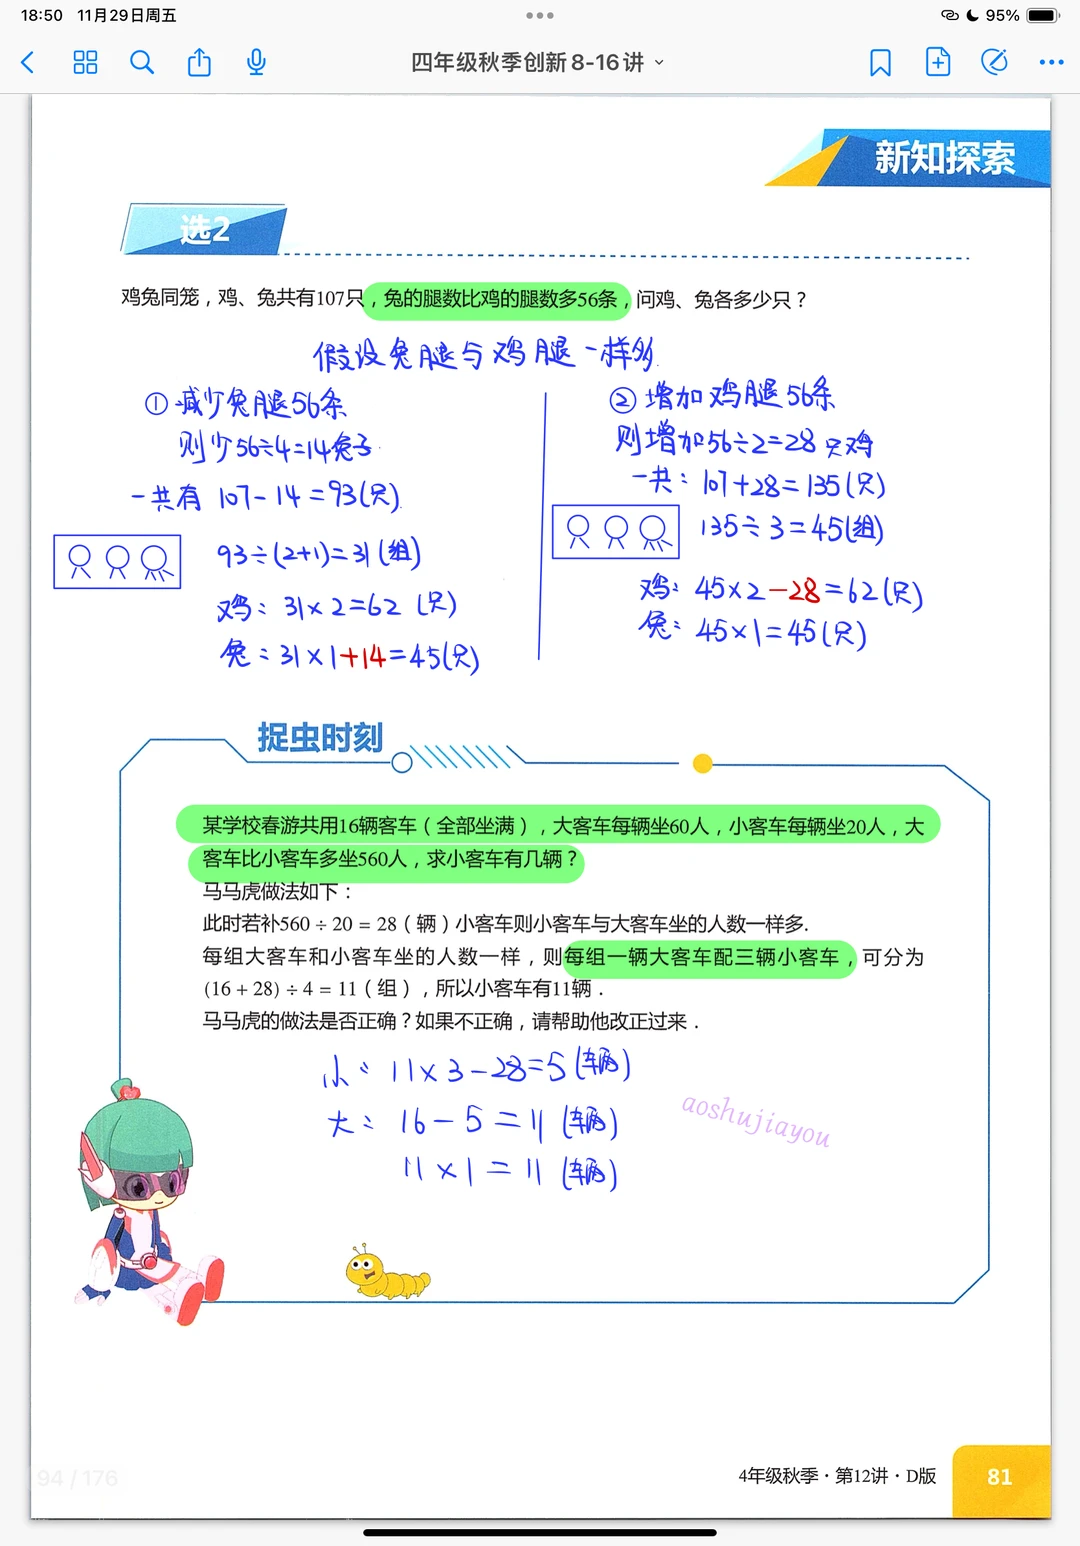 18:50 11月29日周五
95%
四年级秋季创新8-16讲
新知探索
选2
鸡兔同笼，鸡、兔共有107只，兔的腿数比鸡的腿数多56条，问鸡、兔各多少只？
假设兔腿与鸡腿一样多.
①减少兔腿56条
则少56÷4=14兔子.
一共有 107-14=93(只)
93÷(2+1)=31(组)
鸡：31×2=62(只)
兔：31×1+14=45(只)
②增加鸡腿56条
则增加56÷2=28只鸡
一共：107+28=135(只)
135÷3=45(组)
鸡：45×2-28=62(只)
兔：45×1=45(只)
捉虫时刻
某学校春游共用16辆客车（全部坐满），大客车每辆坐60人，小客车每辆坐20人，大
客车比小客车多坐560人，求小客车有几辆？
马马虎做法如下：
此时若补560÷20=28（辆）小客车则小客车与大客车坐的人数一样多.
每组大客车和小客车坐的人数一样，则每组一辆大客车配三辆小客车，可分为
(16+28)÷4=11（组），所以小客车有11辆.
马马虎的做法是否正确？如果不正确，请帮助他改正过来.
小：11×3-28=5(辆)
大：16-5=11(辆)
11×1=11(辆)
aoshujiayou
94 / 176
4年级秋季·第12讲·D版
81